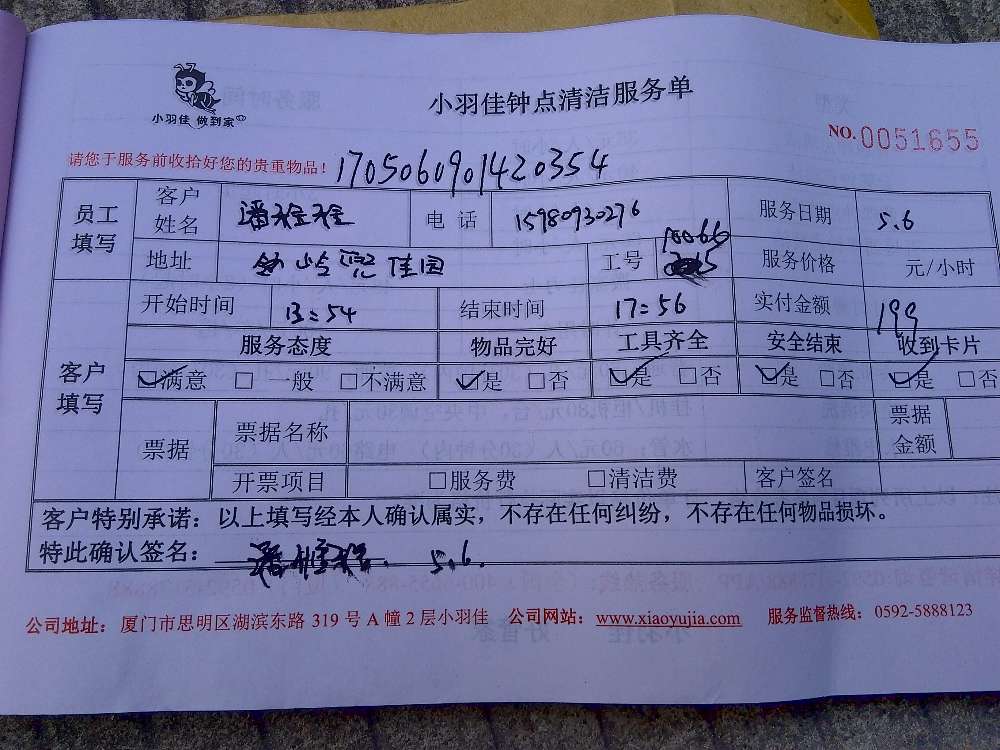 小羽佳 做到家
小羽佳钟点清洁服务单
NO.0051655
请您于服务前收拾好您的贵重物品！ 1705060901420354
员工填写 客户姓名 潘 电话 15980930276 服务日期 5.6
地址 佳园 工号 服务价格 元/小时
客户填写 开始时间 13:54 结束时间 17:56 实付金额 199
服务态度 物品完好 工具齐全 安全结束 收到卡片
☑满意 □一般 □不满意 ☑是 □否 ☑是 □否 ☑是 □否 ☑是 □否
票据 票据名称 票据金额
开票项目 □服务费 □清洁费 客户签名
客户特别承诺：以上填写经本人确认属实，不存在任何纠纷，不存在任何物品损坏。
特此确认签名： 潘 5.6.
公司地址：厦门市思明区湖滨东路 319 号 A 幢 2 层小羽佳 公司网站：www.xiaoyujia.com 服务监督热线：0592-5888123